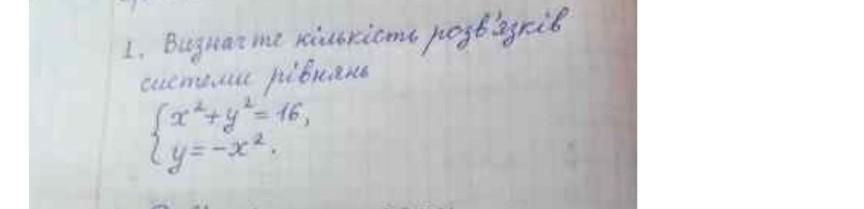 1. Визначте кількість розв'язків
системи рівнянь
{x²+y²=16,
y=-x².